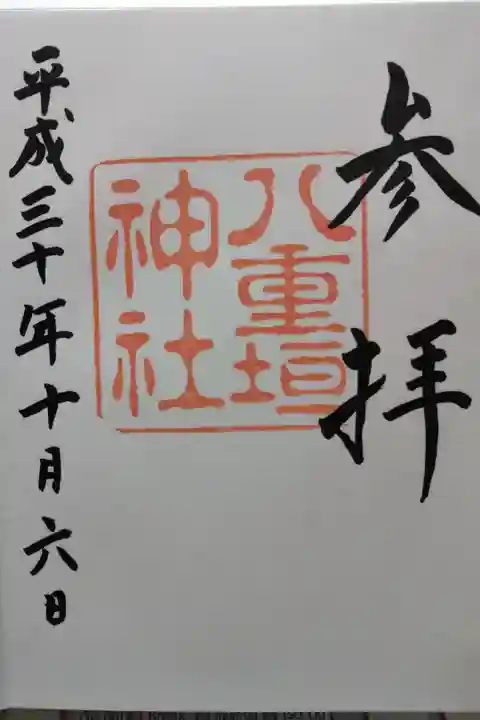 参拝
八重垣
神社
平成三十年十月六日